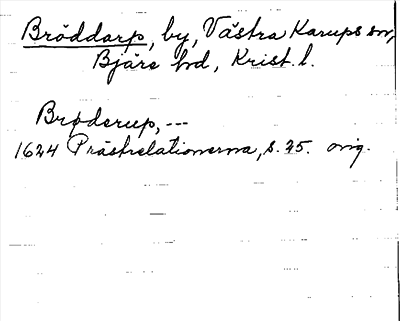 Bröddarp, by, Västra Karups sn,
Bjäre hd, Krist. l.
Brøderup, ---
1624 Prästrelationerna, s. 25. orig.